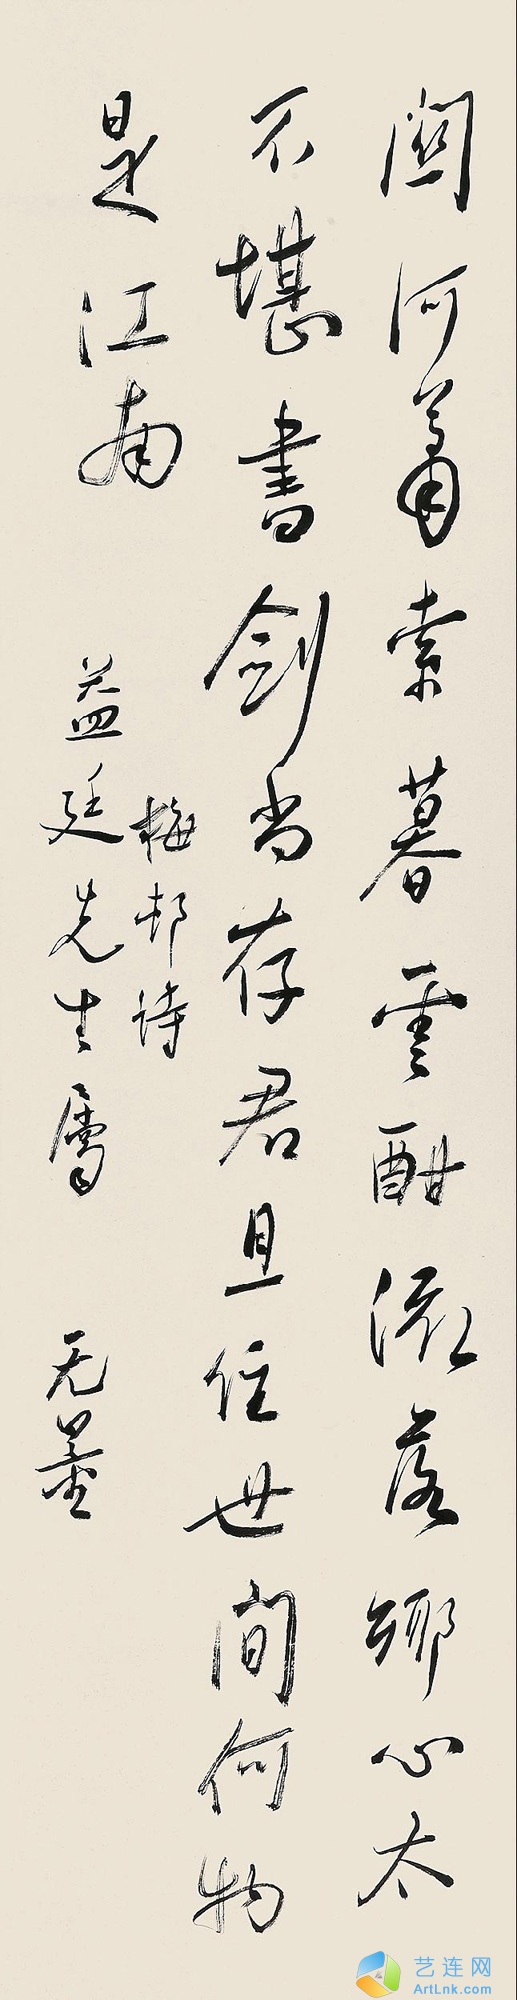 關河蕭索暮雲酣流落鄉心太
不堪書劍尚存君且住世間何物
是江南
梅邨詩
益廷先生屬 无量
艺连网
ArtLnk.com